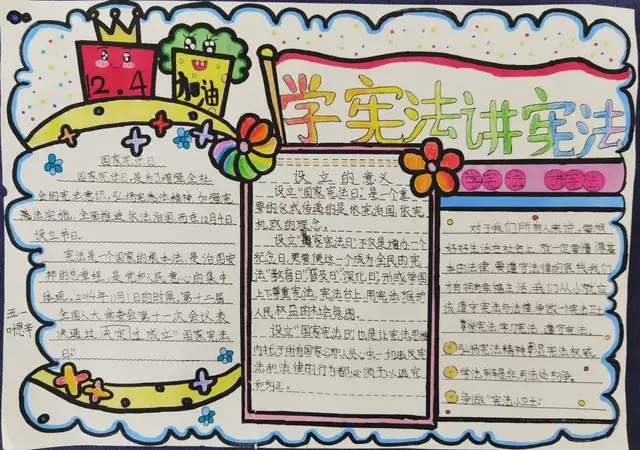 12.4
加油
学宪法讲宪法
国家宪法日
国家宪法日,是为了增强全社
会的宪法意识,弘扬宪法精神,加强宪
法实施,全面推进依法治国,而在12月4日
设立节日。
宪法是一个国家的根本法,是治国安
邦的总章程,是党和人民意心的集中
体现。2014年11月1日的时候,第十二届
全国人大常委会第十一次会议表
决通过决定立成立"国家宪法
日"
五一
设立的意义
设立"国家宪法日",是一个重
要的仪式传递的是依宪治国,依宪
执政的理念。
设立"国家宪法日",不仅是增加一个
纪念日,更要使这一个成为全民的宪
法"教育日""普及日""深化日"形成举国
上下尊重宪法,宪法台上,用宪法维护
人民权益的社会氛围。
设立"国家宪法日"也是让宪法思维
内托于所有国家公职人民心中一切违反宪
法和法律的行为都必须予以追究
和纠正。
学宪法 讲宪法
对于我们所有人来说,要想
好好生活在社会上,就一定要懂得基
本由法律,要遵守法律的底线我们
才有拥有幸福生活,我们从小就应
该遵守宪法与法律,争做一个宪法卫士
尊崇宪法,学习宪法,遵守宪法。
弘扬宪法精神彰显宪法权威。
学法
是非用法处
争做"宪法小卫士"